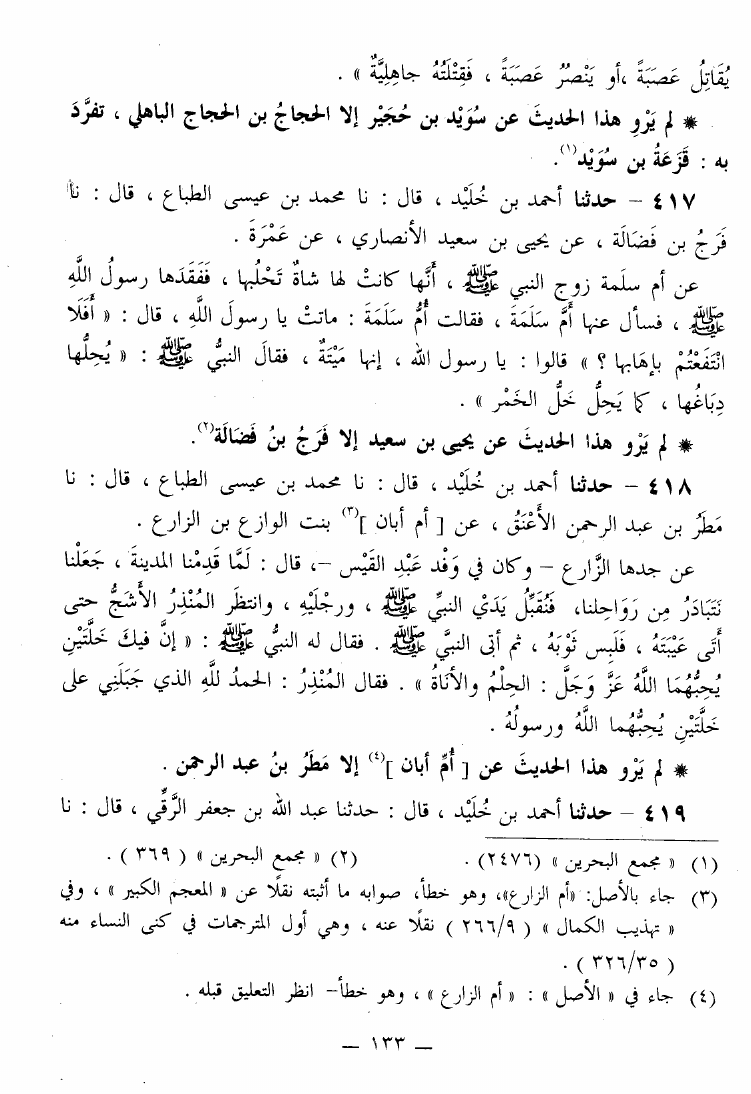 يُقَاتِلُ عَصَبَةً ،أو يَنْصُرُ عَصَبَةً ، فَقِتْلَتُهُ جاهِلِيَّةٌ » .
* لم يَرْوِ هذا الحديثَ عن سُوَيْد بن حُجَيْر إلا الحجاجُ بن الحجاج الباهلي ، تفرَّدَ
به : قَزَعَةُ بن سُوَيْد(١).
٤١٧ – حدثنا أحمد بن خُلَيْد ، قال : نا محمد بن عيسى الطباع ، قال : نا
فَرَجُ بن فَضَالَة ، عن يحيى بن سعيد الأنصاري ، عن عَمْرَةَ .
عن أم سلَمة زوج النبي ﷺ ، أَنَّها كانتْ لها شاةٌ تَحْلُبها ، فَفَقَدَها رسولُ اللَّهِ
ﷺ ، فسأل عنها أمَّ سَلَمَةَ ، فقالت أُمُّ سَلَمَةَ : ماتتْ يا رسولَ اللَّهِ ، قال : « أَفَلَا
انْتَفَعْتُمْ بإهَابِها ؟ » قالوا : يا رسول الله ، إنها مَيْتَةٌ ، فقالَ النبيُّ ﷺ : « يُحِلُّها
دِبَاغُها ، كما يَحِلُّ خَلُّ الخَمْر » .
* لم يَرْو هذا الحديثَ عن يحيى بن سعيد إلا فَرَجُ بنُ فَضَالَة(٢).
٤١٨ – حدثنا أحمد بن خُلَيْد ، قال : نا محمد بن عيسى الطباع ، قال : نا
مَطَرُ بن عبد الرحمن الأَعْنَقُ ، عن [ أم أبان ](٣) بنت الوازع بن الزارع .
عن جدها الزَّارع – وكان في وَفْد عَبْدِ القَيْس –، قال : لَمَّا قَدِمْنا المدينةَ ، جَعَلْنا
نَتَبَادَرُ مِن رَوَاحِلنا، فَنُقَبِّلُ يَدَيْ النبيِّ ﷺ ، ورِجْلَيْهِ ، وانتظَر المُنْذِرُ الأَشَجُّ حتى
أَتَى عَيْبَتَهُ ، فَلَبِس ثَوْبَهُ ، ثم أتى النبيَّ ﷺ . فقال له النبيُّ ﷺ : « إنَّ فيكَ خَلَّتَيْنِ
يُحِبُّهُمَا اللَّهُ عَزَّ وَجَلَّ : الحِلْمُ والأَنَاةُ » . فقال المُنْذِرُ : الحمدُ للَّهِ الذي جَبَلَنِي على
خَلَّتَيْنِ يُحِبُّهُما اللَّهُ ورسولُهُ .
* لم يَرْو هذا الحديثَ عن [ أُمِّ أبان ](٤) إلا مَطَرُ بنُ عبد الرحمن .
٤١٩ – حدثنا أحمد بن خُلَيْد ، قال : حدثنا عبد الله بن جعفر الرَّقِّي ، قال : نا
(١) « مجمع البحرين » (٢٤٧٦) . (٢) « مجمع البحرين » ( ٣٦٩ ) .
(٣) جاء بالأصل: «أم الزارع»، وهو خطأ، صوابه ما أثبته نقلًا عن « المعجم الكبير » ، وفي
« تهذيب الكمال » ( ٢٦٦/٩ ) نقلًا عنه ، وهي أول المترجمات في كنى النساء منه
( ٣٢٦/٣٥ ) .
(٤) جاء في « الأصل » : « أم الزارع » ، وهو خطأ– انظر التعليق قبله .
— ١٣٣ —